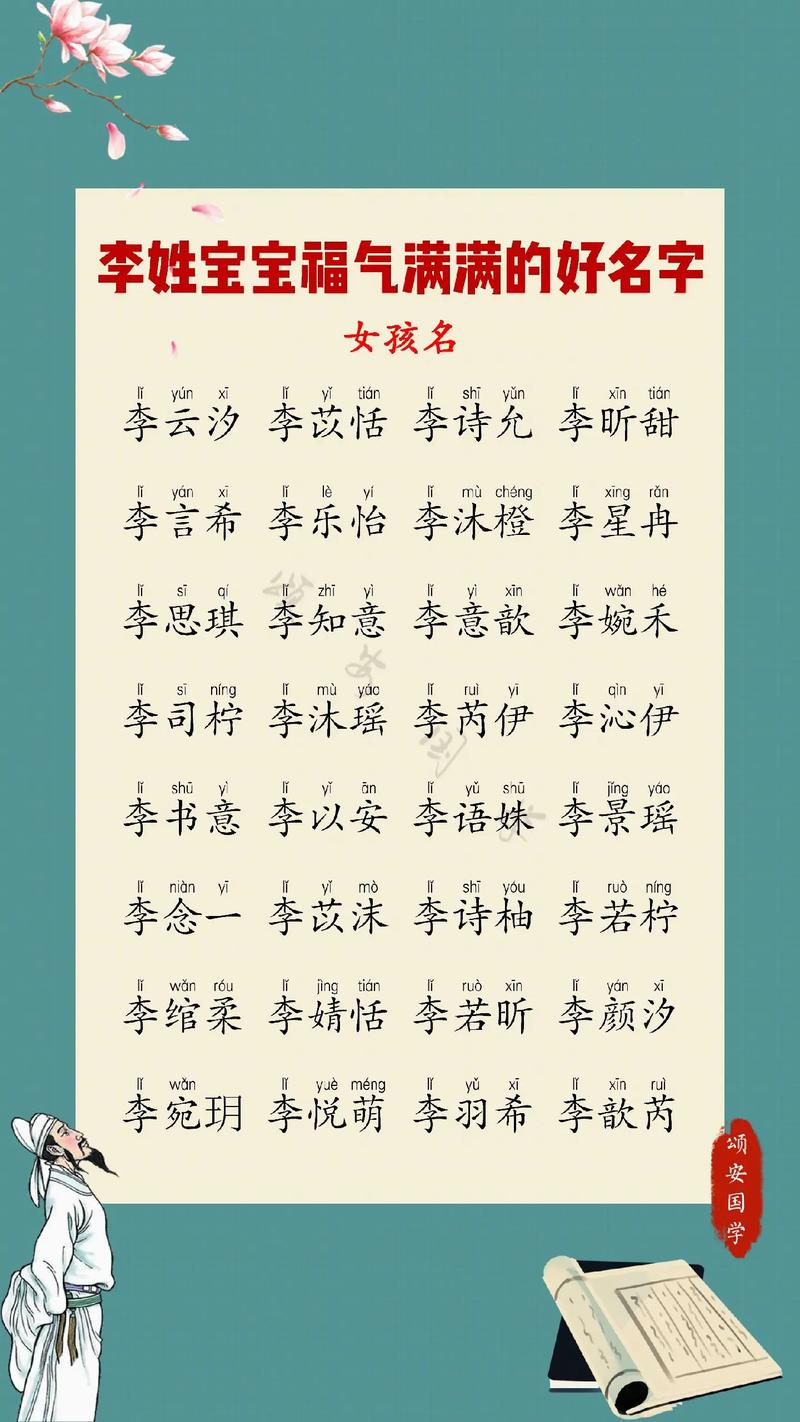 李姓宝宝福气满满的好名字
女孩名
lǐ yún xī lǐ yǐ tián lǐ shī yǔn lǐ xīn tián
李云汐 李苡恬 李诗允 李昕甜
lǐ yán xī lǐ lè yí lǐ mù chéng lǐ xīng rǎn
李言希 李乐怡 李沐橙 李星冉
lǐ sī qí lǐ zhī yì lǐ yì xīn lǐ wǎn hé
李思琪 李知意 李意歆 李婉禾
lǐ sī níng lǐ mù yáo lǐ ruì yī lǐ qìn yī
李司柠 李沐瑶 李芮伊 李沁伊
lǐ shū yì lǐ yǐ ān lǐ yǔ shū lǐ jǐng yáo
李书意 李以安 李语姝 李景瑶
lǐ niàn yī lǐ yǐ mò lǐ shī yóu lǐ ruò níng
李念一 李苡沫 李诗柚 李若柠
lǐ wǎn róu lǐ jìng tián lǐ ruò xīn lǐ yán xī
李绾柔 李婧恬 李若昕 李颜汐
lǐ wǎn lǐ yuè méng lǐ yǔ xī lǐ xīn ruì
李宛玥 李悦萌 李羽希 李歆芮
颂安国学
颂安国学